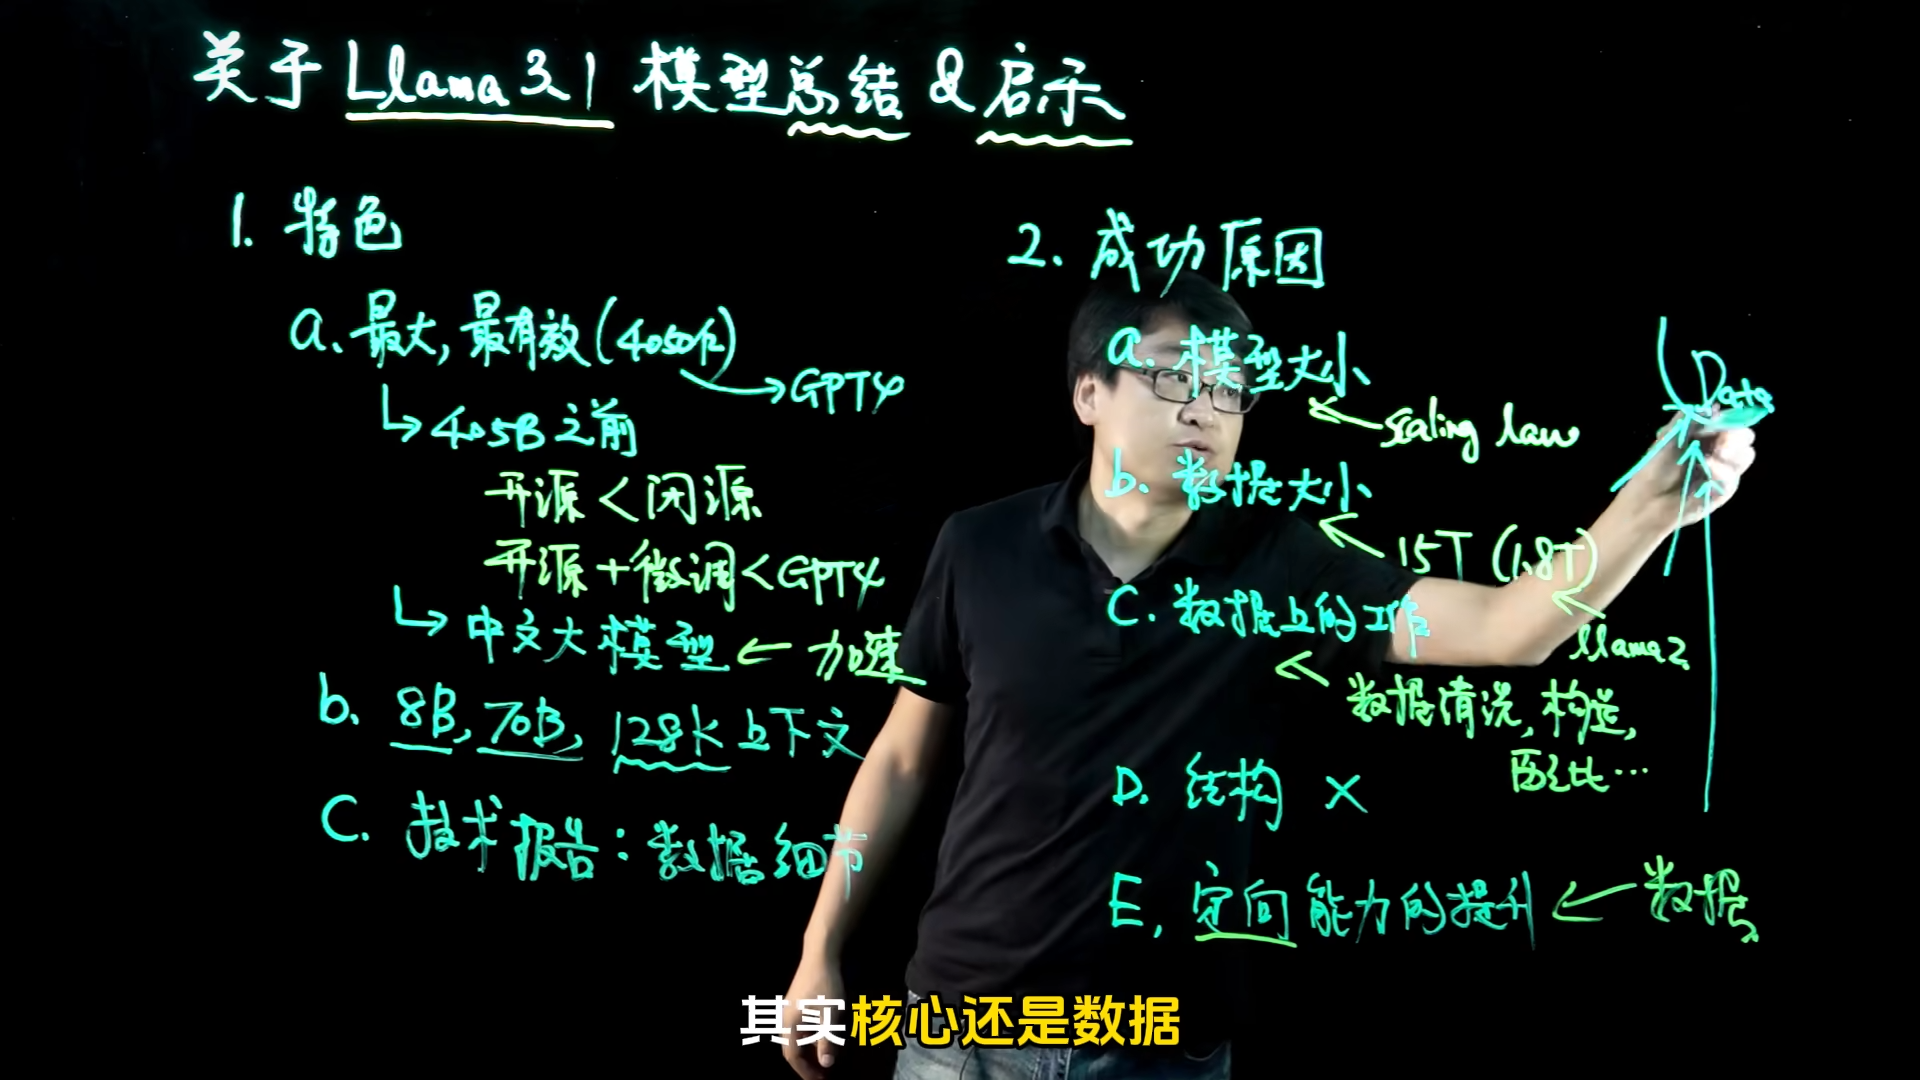 关于 Llama 3.1 模型总结 & 启示
1. 特色
a. 最大, 最有效 (4050亿)
→ GPT4
↳ 405B 之前
开源 < 闭源
开源 + 微调 < GPT4
↳ 中文大模型 ← 加速
b. 8B, 70B, 128k 上下文
C. 技术报告: 数据细节
2. 成功原因
a. 模型大小
← scaling law
b. 数据大小
← 15T (1.8T)
← llama2
C. 数据上的工作
← 数据清洗, 构造,
配比…
D. 结构 ×
E, 定向能力的提升 ← 数据
Data
其实核心还是数据